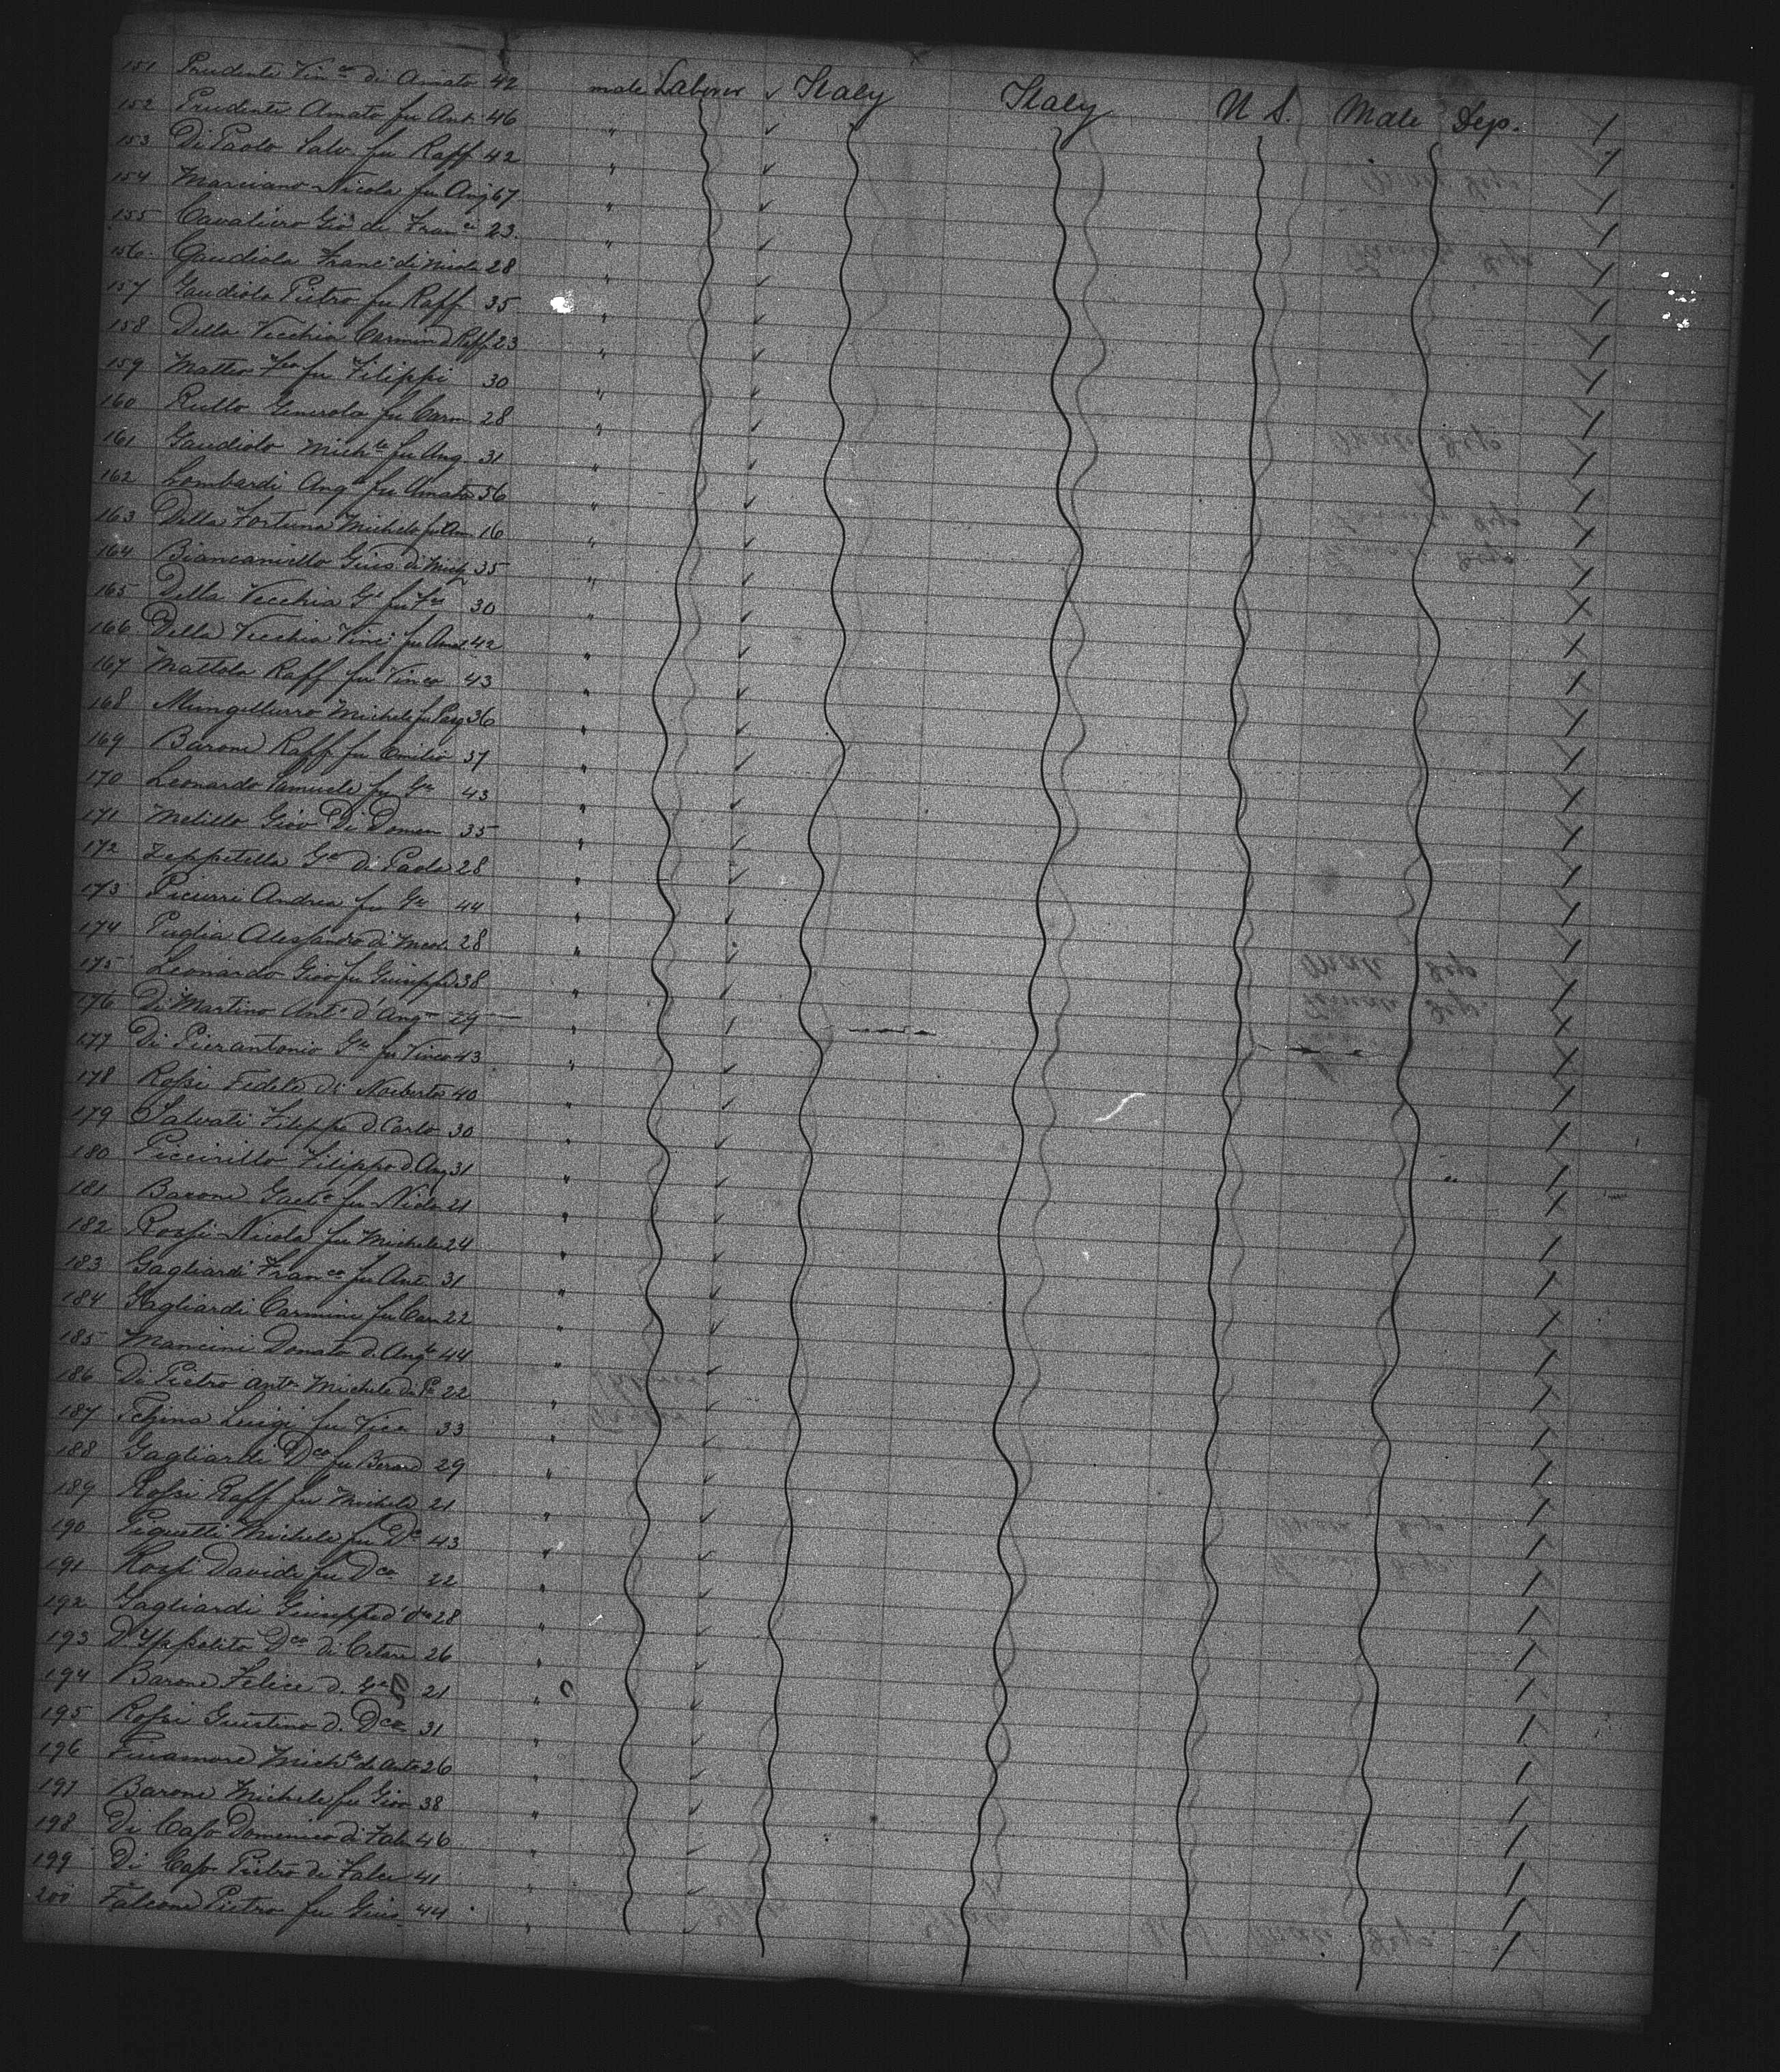 151 Prudente Vin.co di Amato 42 male Laborer ✓ Italy Italy U S. Male Dep. /
152 Prudente Amato fu Ant. 46 "
153 Di Paolo Salv. fu Raff 42 "
154 Marciano Nicola fu Ang 67 "
155 Cavaliero Gio di Fran.co 23. "
156. Gaudiola Franc. di Nicola 28 "
157 Gaudiola Pietro fu Raff. 35 "
158 Della Vecchia Carmin d Raff 23 "
159 Matteo Fco fu Filippi 30 "
160 Rullo Generola fu Carm 28 "
161 Gaudiolo Mich.le fu Ang. 31 "
162 Lombardi Ang.o fu Amato 56 "
163 Della Fortuna Michele fu An 16 "
164 Biancaniello Gius. di Mich 35 "
165 Della Vecchia G. fu 30 "
166 Della Vecchia Vinc. fu Amat 42 "
167 Mattola Raff fu Vinco 43 "
168 Mungelluzzo Michele fu Pasq 36 "
169 Barone Raff. fu Emilio 37 "
170 Leonardo Samuele fu Ge 43 "
171 Melillo Giov Di Domen 35 "
172 Zeppetella Ge di Paolo 28 "
173 Picurri Andrea fu Ge 44 "
174 Puglia Alessandro di Nicol. 28 "
175 Leonardo Giov fu Giuseppe 38 "
176 Di Martino Ant.o d'Ang.o 29
177 Di Pierantonio Ge fu Vinco 43 "
178 Rossi Fedele di Norberto 40 "
179 Salvati Filippo d. Carlo 30 "
180 Piccirillo Filippo d. Ang 31 "
181 Barone Gaet.o fu Nicla 21 "
182 Rossi Nicola fu Michele 24 "
183 Gagliardi Fran.co fu Ant. 31 "
184 Gagliardi Carmine fu Car 22 "
185 Mancini Donato d. Ang.lo 44 "
186 Di Pietro Anto Michele di 22 "
187 Schina Luigi fu 33 "
188 Gagliardi Dco fu Berard 29 "
189 Rossi Raff fu Michele 21 "
190 Piquetti Michele fu Dco 43 "
191 Rossi Davide fu Dco 22 "
192 Gagliardi Giuseppe 28 "
193 D'Ippolito Dco di Cesare 26 "
194 Barone Felice d. 21 "
195 Rossi Giustino d. Dco 31 "
196 Finamore Mich.le di Anto 26 "
197 Barone Michele fu Giov 38 "
198 Di Caso Domenico di Falc 46 "
199 Di Caso Pietro di Falco 41 "
200 Falcone Pietro fu Gius. 44 "